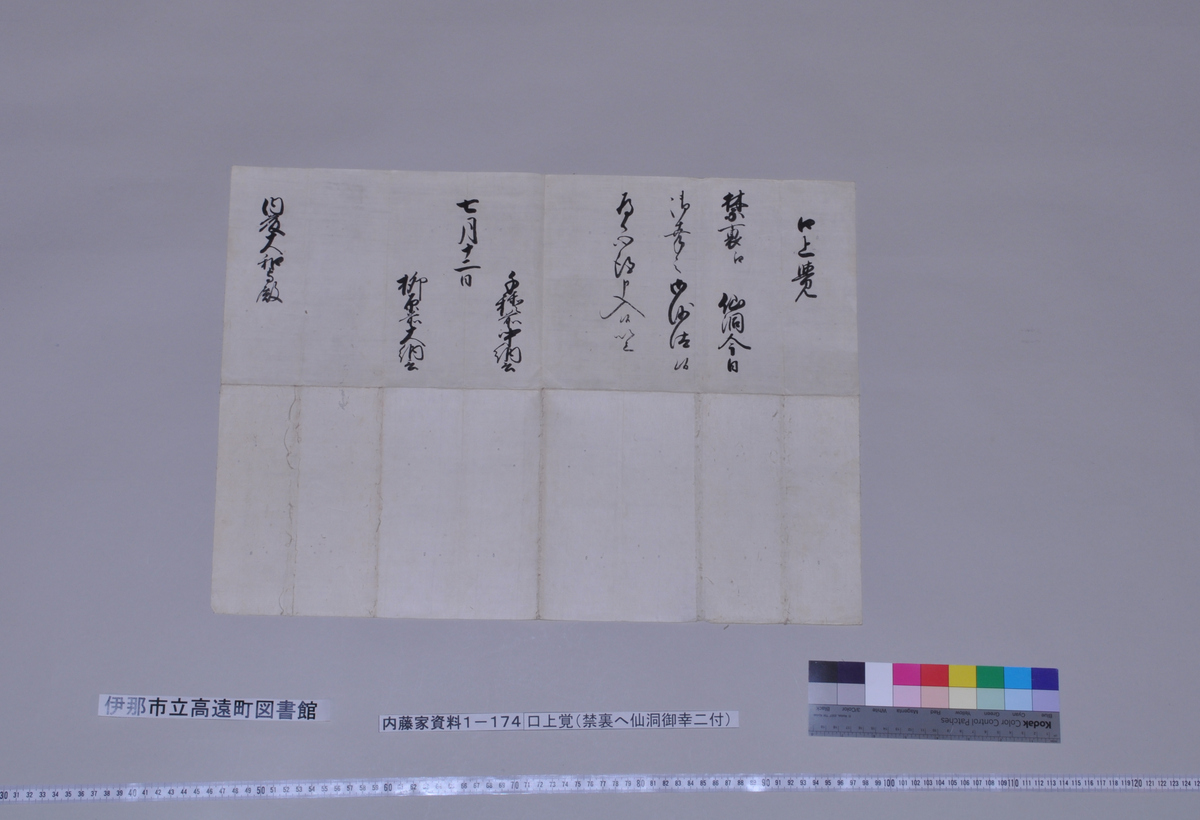 口上覚
禁裏江 仙洞今日
御幸之御沙汰候
為御
七月十二日
千種前中納言
柳原大納言
内藤大和守殿
伊那市立高遠町図書館
内藤家資料1－174 口上覚(禁裏へ仙洞御幸ニ付)
Kodak Color Control Patches
Blue Cyan Green Yellow Red Magenta White 3/Color Black